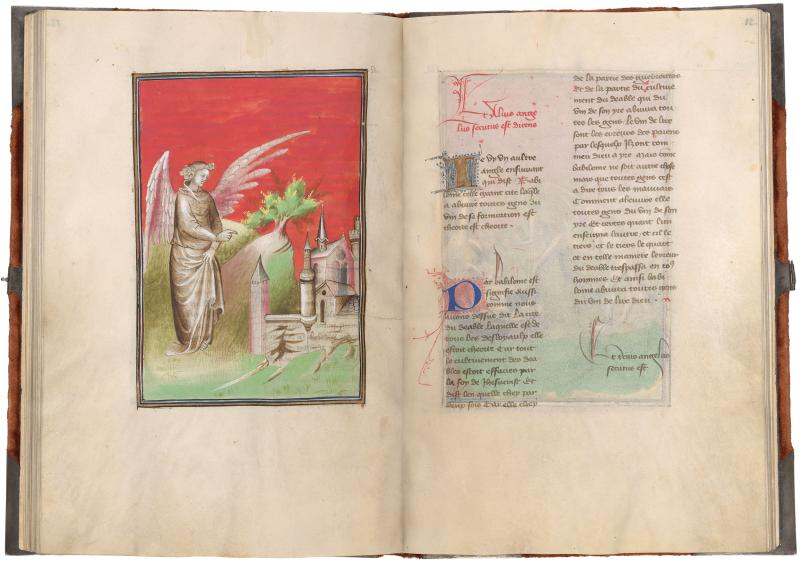 82
Et Alius ange
lus secutus est dicens
Ie vy vn aultre
angle ensuivant
qui dist Babi
lonne celle grant cite laqle
a abuvre toutes gens du
vin de sa fornication est
cheoite est cheoite.
Par babilonne est
signifie aussi
comme nous
avons dessus dit la cite
du deable laquelle est de
tous les desloyaulx elle
estoit cheoite Car tout
le cultivement des dea
bles estoit effacies par
la foy de Jhesucrist Et
dist len quelle chey par
deux fois Car elle chey
de la partie des
et de la partie du cultive
ment du deable qui du
vin de son yre abuvra tou
tes les gens. Le vin de lire
sont les erreurs des paiens
par lesquels ilz ont com
meu dieu a yre Mais come
babilonne ne soit autre chose
mais que toutes gens cest
a dire tous les mauvais
Comment abeuvre elle
toutes gens du vin de son
yre Et certes quant lun
enseigna lautre, et cil le
tiers, et le tiers le quart
et en telle maniere lerreur
du deable trespassa en to9
hommes Et ainsi babi
lonne abuvra toutes gens
du vin de lire dieu.
Et tercius angelus
secutus est